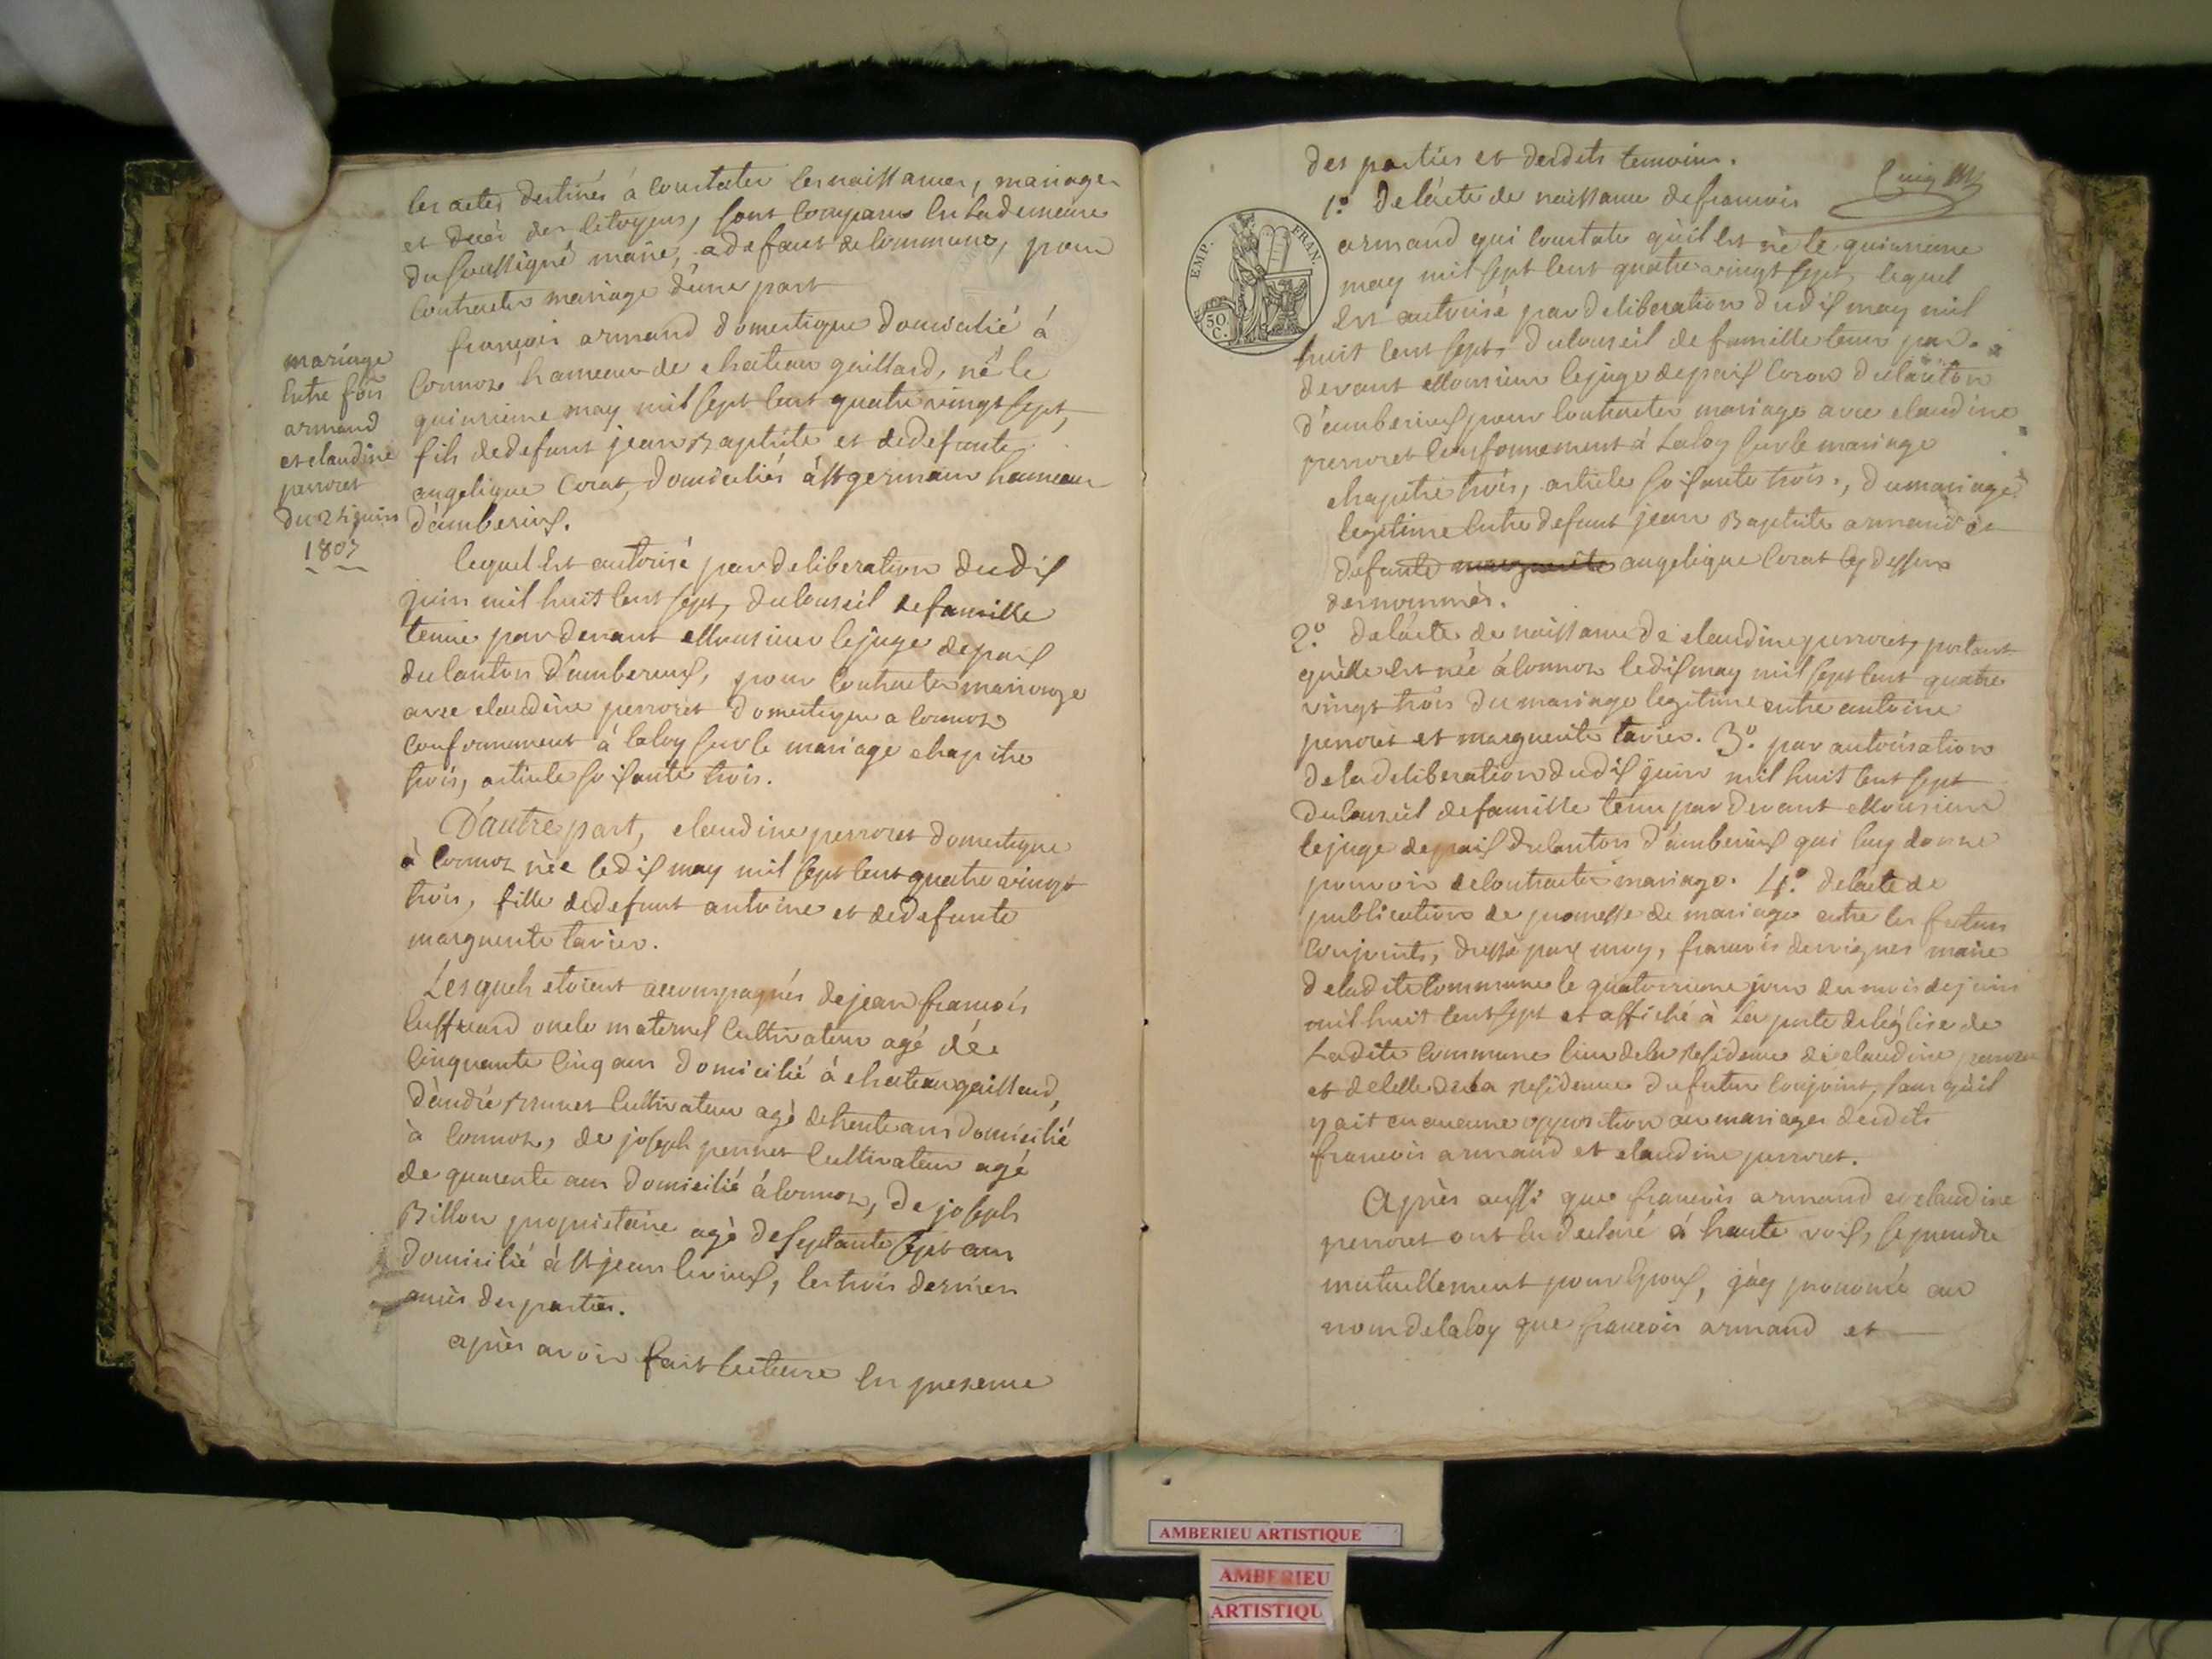 les actes destinés à constater les naissances, mariages
et decès des citoyens, sont comparus en la demeure
du soussigné maire, a defaut de commune, pour
contracter mariage d'une part
françois armand domestique domicilié à
cormoz hameau de chateau gaillard, né le
quinzieme may mil sept cent quatre vingt sept,
fils de defunt jean Baptiste et de defunte
angelique Corat, domiciliés à st germain hameau
d'amberieux.
mariage
entre fois
armand
et claudine
perroset
du 21 juin
1807
lequel est autorisé par deliberation du dix
juin mil huit cent sept, du conseil de famille
tenue par devant Monsieur le juge de paix
du canton d'amberieux, pour contracter mariage
avec claudine perroset domestique a cormoz
conformement à la loy sur le mariage chapitre
trois, article soixante trois.
D'autre part, claudine perroset domestique
à cormoz née le dix may mil sept cent quatre vingt
trois, fille de defunt antoine et de defunte
marguerite tavier.
Lesquels etoient accompagnés de jean françois
oncle maternel cultivateur agé de
cinquante cinq ans domicilié à chateau gaillard,
d'andré Brunet cultivateur agé de trente ans domicilié
à cormoz, de joseph perret cultivateur agé
de quarente ans domicilié à cormoz, de joseph
Billon proprietaire agé de septante sept ans
domicilié à st jean le vieux, les trois derniers
amis des parties.
après avoir fait lecture en presence
des parties et desdits temoins.
1.o De l'acte de naissance de francois
armand qui constate qu'il est né le quinzieme
may mil sept cent quatre vingt sept, lequel
est autorisé par deliberation du dix may mil
huit cent sept, du conseil de famille tenu par
devant Monsieur le juge de paix du canton
d'amberieux pour contracter mariage avec claudine
perroset conformement à La loy sur le mariage
chapitre trois, article soixante trois, du mariage
legitime entre defunt jean Baptiste armand et
defunte marguerite angelique Corat cy dessus
denommés.
2.o de l'acte de naissance de claudine perroset, portant
qu'elle est née à cormoz le dix may mil sept cent quatre
vingt trois du mariage legitime entre antoine
perroset et marguerite tavier. 3.o par autorisation
de la deliberation du dix juin mil huit cent sept
du conseil de famille tenu par devant Monsieur
le juge de paix du canton d'amberieux qui luy donne
pouvoir de contracter mariage. 4.o de l'acte de
publication de promesse de mariage entre les futurs
conjoints, dressé par moy, francois dervignes maire
de ladite commune le quatorzieme jour du mois de juin
mil huit cent sept et affiché à la porte de l'église de
Ladite commune lieu de la residence de claudine perroset
et de celle de la residence du futur conjoint, sans qu'il
y ait eu aucune opposition au mariage desdits
francois armand et claudine perroset.
Après aussi que francois armand et claudine
perroset ont eu declaré à haute voix, se prendre
mutuellement pour epoux, j'ay prononcé au
nom de la loy que francois armand et
EMP. FRAN.
50 C.
AMBERIEU ARTISTIQUE
AMBERIEU
ARTISTIQU